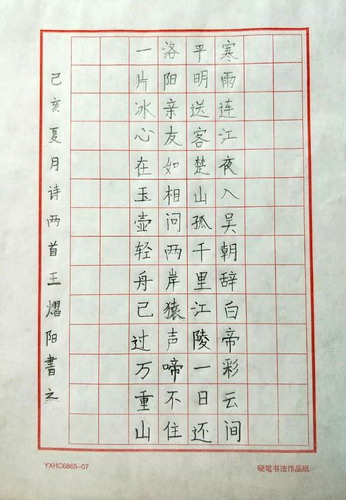 寒雨连江夜入吴朝辞白帝彩云间
平明送客楚山孤千里江陵一日还
洛阳亲友如相问两岸猿声啼不住
一片冰心在玉壶轻舟已过万重山
己亥夏月诗两首王熠阳書之
YXHC6865-07
硬笔书法作品纸